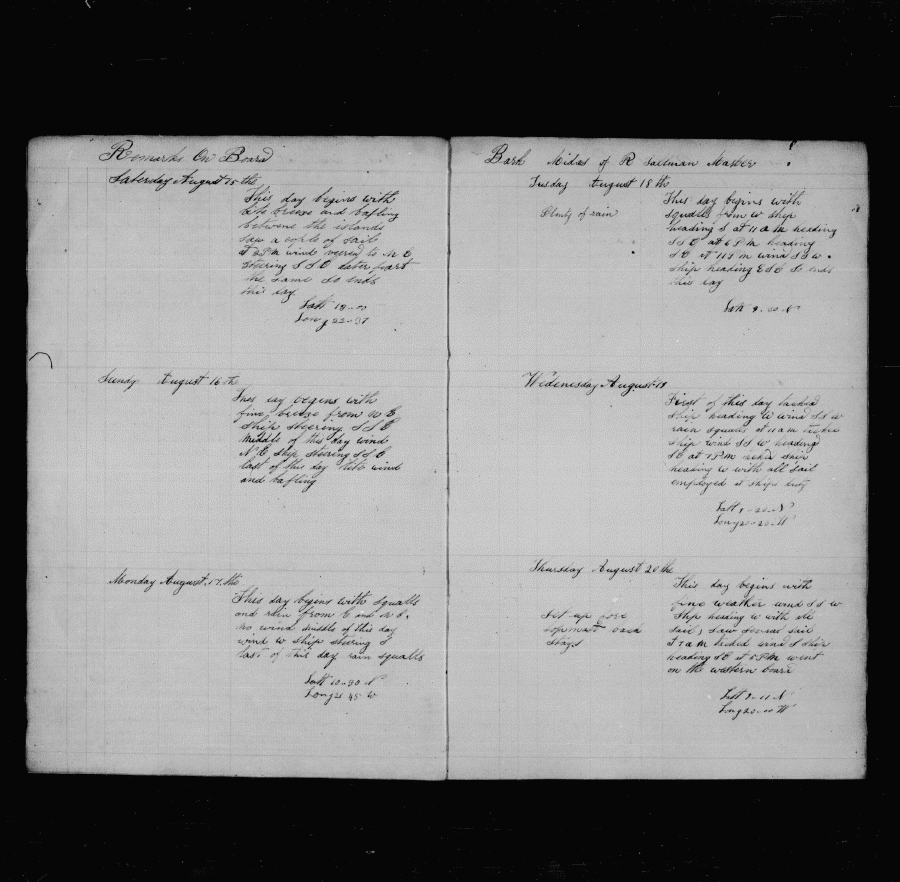 Remarks On Board
Saturday August 15 the
This day begins with
lite breeze and bafling
betwene the islands
saw a cople of sail
at 2 PM wind veered to N E
steering S S E later part
the same So ends
this day
Latt 18-00
Long 22-37
Sundy August 16 the
This day begins with
fine breeze from N E
ship steering S S E
middle of this day wind
N E ship steering S S E
last of this day lite wind
and bafling
Monday August 17 the
This day begins with squalls
and rain from E and
no wind middle of this day
wind W ship steering S
last of this day rain squalls
Latt 10-30 N
Long 21 45 W
Bark Midas of R Master
Tusday August 18 the
Plenty of rain
This day begins with
squalls from W ship
heading S at 11 a m heading
S S E at 6 P M heading
S E at wind S S W
ship heading E S E So ends
this day
Latt 9-30 N
Wedenesday August 19
First of this day tacked
ship heading W wind S S W
rain squalls at 11 a m tacked
ship wind S S W heading
S E at 7 P M ship
heading W with all sail
employed at ships duty
Latt 9-20 N
Long 20-20 W
Thursday August 20 the
Set up fore
topmast back
stays
This day begins with
fine weather wind S S W
Ship heading W with all
sail saw several sail
at 7 a m tacked wind S ship
heading S E at 5 P M went
on the western board
Latt 9-11 N
Long 20-00 W